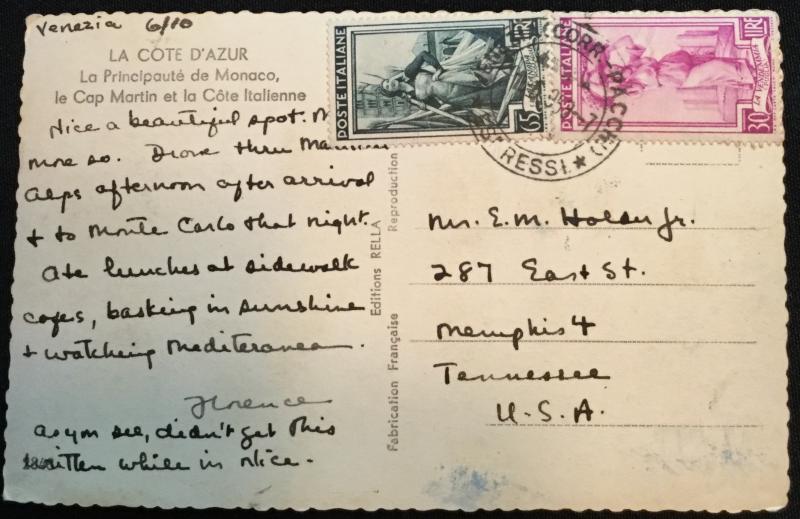 Venezia 6/10
LA COTE D'AZUR
La Principauté de Monaco,
le Cap Martin et la Côte Italienne
Nice a beautiful spot.
more so. Drove thru
Alps afternoon after arrival
+ to Monte Carlo that night.
Ate lunches at sidewalk
cafes, basking in sunshine
+ watching Mediteranean.
Florence
As you see, didn't get this
written while in Nice.
Editions RELLA
Fabrication Française
Reproduction
POSTE ITALIANE
65 LIRE
POSTE ITALIANE
30 LIRE
Mr. E. M. Holder Jr.
287 East St.
Memphis 4
Tennessee
U.S.A.